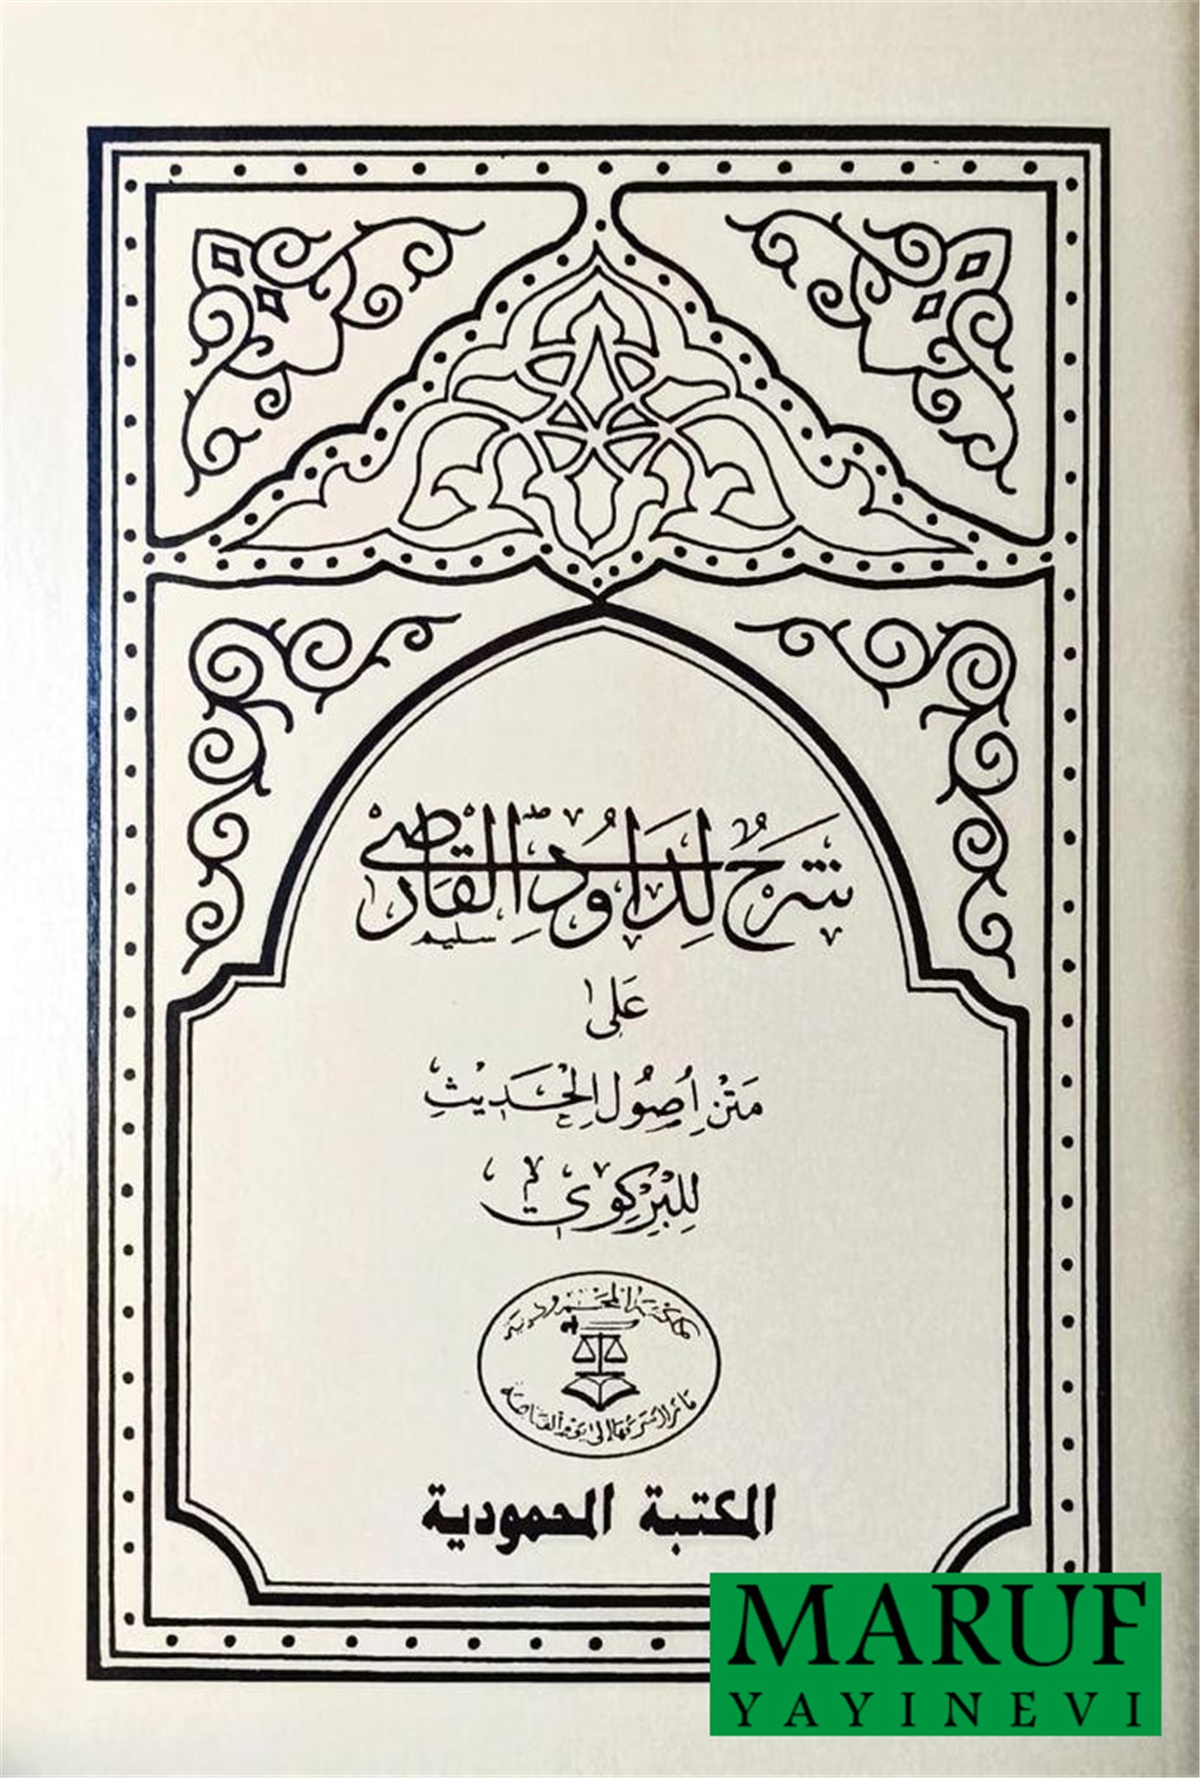 شَرْحُ لِدَاوُدَ القَارْضِي
سليم
عَلى
مَتْن اُصُول الْحَدِيْثِ
لِلْبِرْكِوِي
مكتبة المحمودية
المكتبة المحمودية
MARUF
YAYINEVI